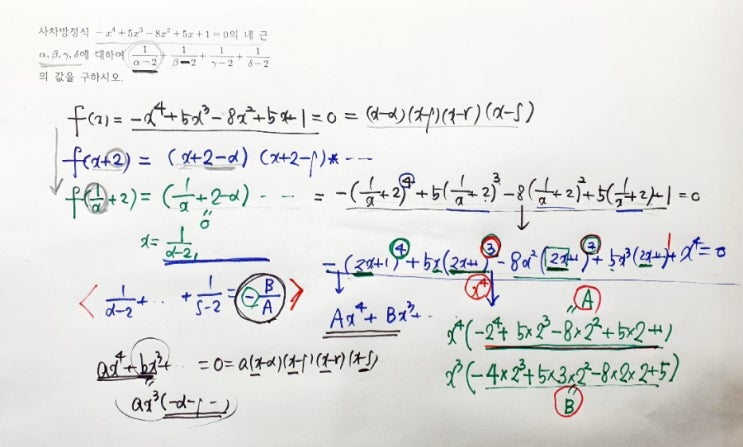 사차방정식 -x⁴+5x³-8x²+5x+1=0의 네 근
α, β, γ, δ에 대하여 1/(α-2) + 1/(β-2) + 1/(γ-2) + 1/(δ-2)
의 값을 구하시오.
f(x) = -x⁴+5x³-8x²+5x+1=0 = (x-α)(x-β)(x-r)(x-δ)
f(x+2) = (x+2-α)(x+2-β)* ---
f(1/x+2) = (1/x+2-α) -- -- = -(1/x+2)⁴+5(1/x+2)³-8(1/x+2)²+5(1/x+2)+1=0
0
x = 1/(α-2)
-(2x+1)⁴+5x(2x+1)³-8x²(2x+1)²+5x³(2x+1)+x⁴=0
< 1/(α-2) + ·· + 1/(δ-2) = -B/A >
x⁴
A
Ax⁴+Bx³+··
x⁴(-2⁴+5×2³-8×2²+5×2+1)
ax⁴+bx³+ ·· =0=a(x-α)(x-β)(x-r)(x-δ)
x³(-4×2³+5×3×2²-8×2×2+5)
ax³(-α-β--)
B